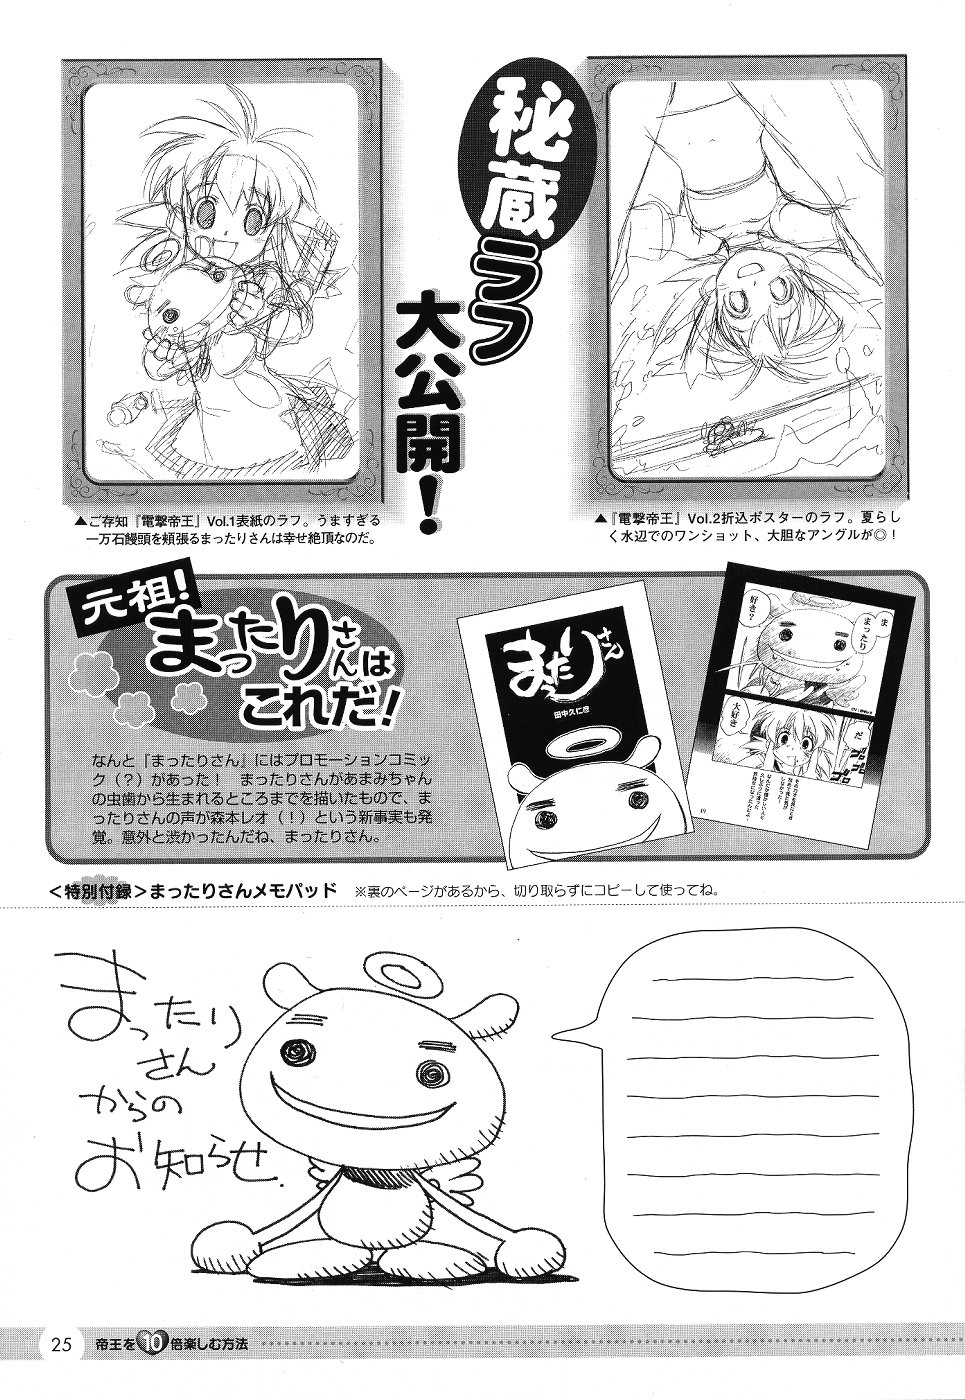 秘蔵ラフ
大公開!
▲ご存知『電撃帝王』Vol.1表紙のラフ。うますぎる
一万石饅頭を頬張るまったりさんは幸せ絶頂なのだ。
▲『電撃帝王』Vol.2折込ポスターのラフ。夏らし
く水辺でのワンショット、大胆なアングルが◎!
元祖!
まったりさんは
これだ!
なんと『まったりさん』にはプロモーションコミッ
ク(?)があった! まったりさんがあまみちゃん
の虫歯から生まれるところまでを描いたもので、ま
ったりさんの声が森本レオ(!)という新事実も発
覚。意外と渋かったんだね、まったりさん。
まったりさん
田中久仁彦
ま
まったり
好き?
だ
大好き
ゴロ
ゴロ
19
<特別付録>まったりさんメモパッド ※裏のページがあるから、切り取らずにコピーして使ってね。
まったり
さん
からの
お知らせ.
25 帝王を10倍楽しむ方法